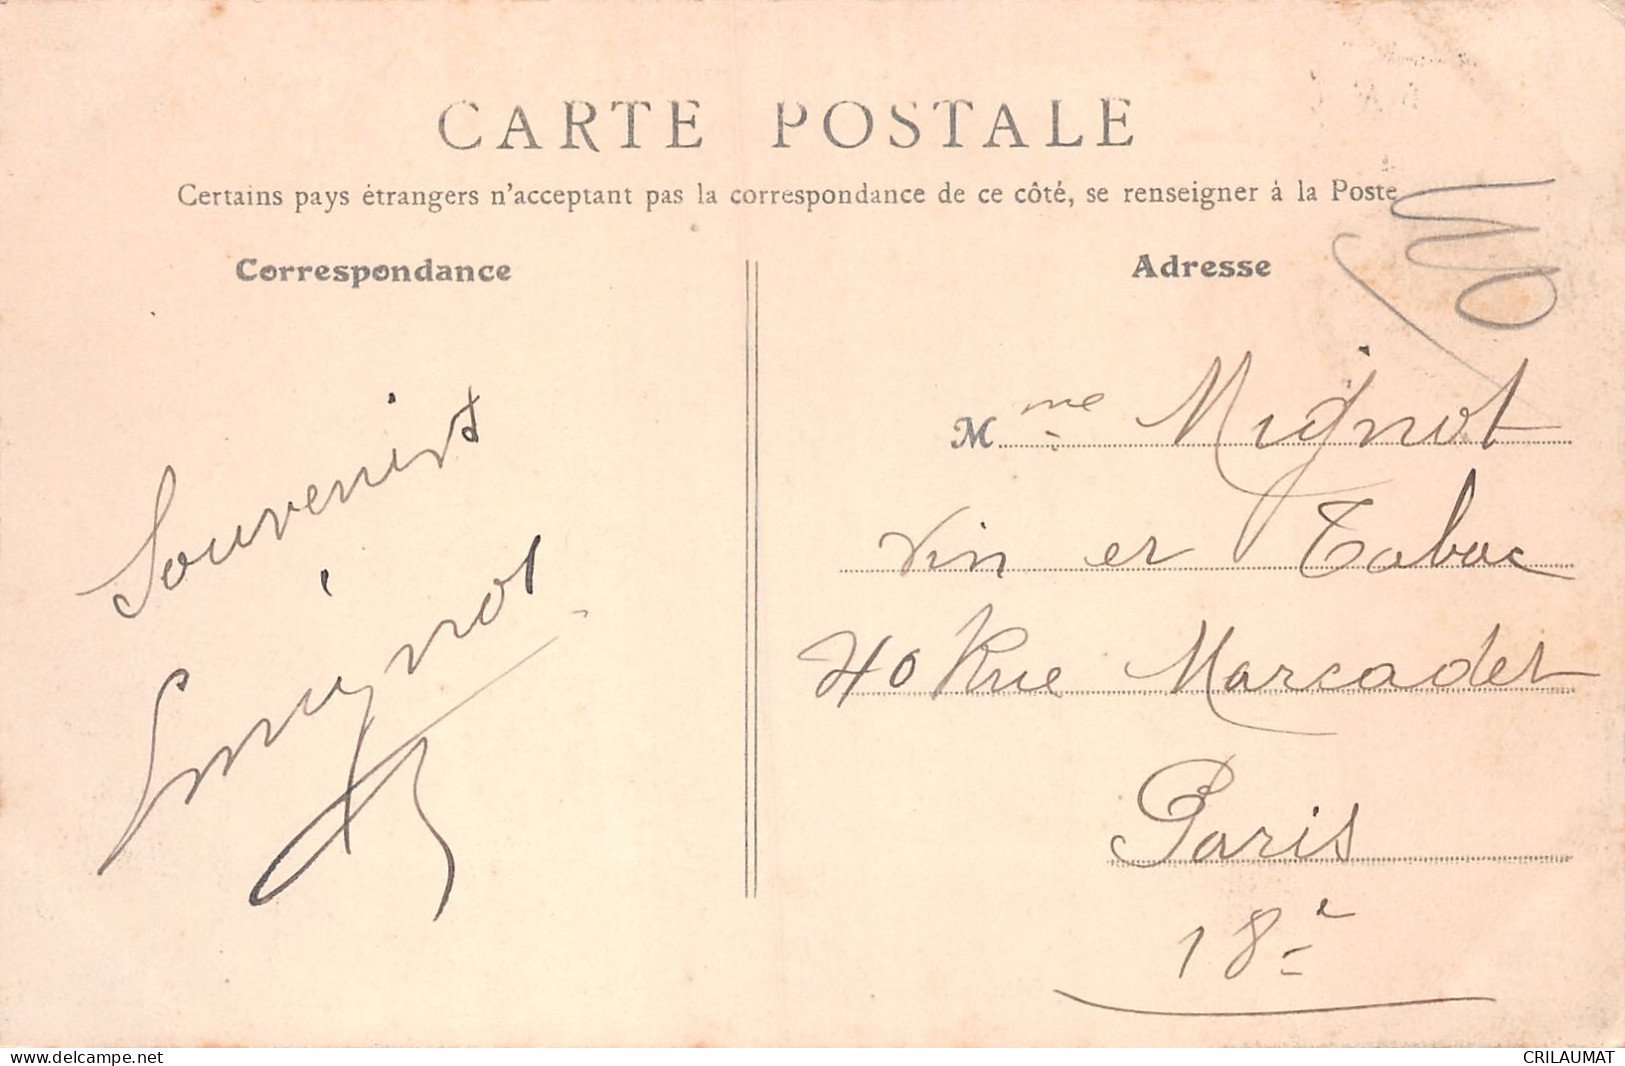 CARTE POSTALE
Certains pays étrangers n'acceptant pas la correspondance de ce côté, se renseigner à la Poste
Correspondance
Adresse
Souvenirs
Mme Mignot
Vin et Tabac
40 Rue Marcadet
Paris
18e
www.delcampe.net
CRILAUMAT